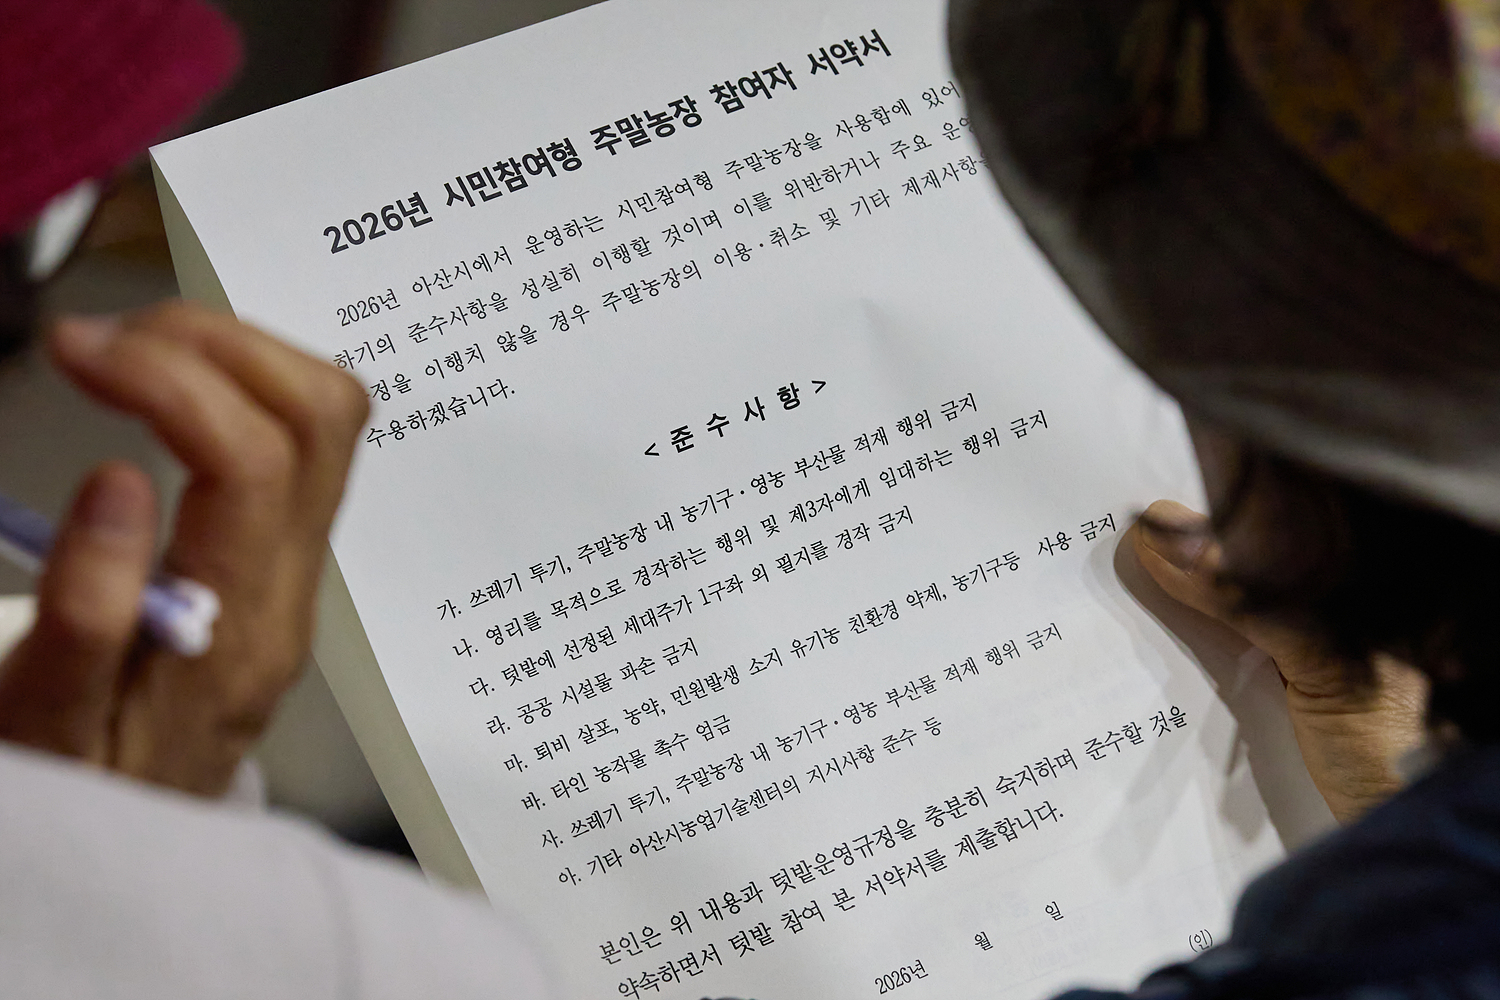 2026년 시민참여형 주말농장 참여자 서약서
2026년 아산시에서 운영하는 시민참여형 주말농장을 사용함에 있어
하기의 준수사항을 성실히 이행할 것이며 이를 위반하거나 주요 운영
정을 이행치 않을 경우 주말농장의 이용·취소 및 기타 제재사항을
수용하겠습니다.
< 준 수 사 항 >
가. 쓰레기 투기, 주말농장 내 농기구·영농 부산물 적재 행위 금지
나. 영리를 목적으로 경작하는 행위 및 제3자에게 임대하는 행위 금지
다. 텃밭에 선정된 세대주가 1구좌 외 필지를 경작 금지
라. 공공 시설물 파손 금지
마. 퇴비 살포, 농약, 민원발생 소지 유기농 친환경 약제, 농기구등 사용 금지
바. 타인 농작물 촉수 엄금
사. 쓰레기 투기, 주말농장 내 농기구·영농 부산물 적재 행위 금지
아. 기타 아산시농업기술센터의 지시사항 준수 등
본인은 위 내용과 텃밭운영규정을 충분히 숙지하며 준수할 것을
약속하면서 텃밭 참여 본 서약서를 제출합니다.
2026년 월 일
(인)